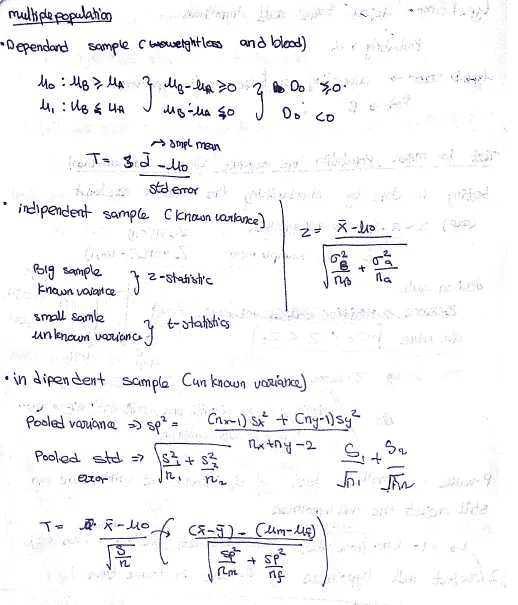 multiple population
• Dependand sample (weightloss and blood)
μ₀ : μB ≥ μA } μB - μA ≥ 0 } D₀ ≥ 0.
μ₁ : μB ≤ μA } μB - μA ≤ 0 } D₀ < 0
→ smpl mean
T = d̄ - μ₀ / std error
• indipendent sample (known variance)
z = x̄ - μ₀ / √(σ²B/nB + σ²a/na)
Big sample
known variance } z-statistic
small samle
unknown variance } t-statistics
• in dipendent sample (unknown variance)
Pooled variance => sp² = (nx-1) sx² + (ny-1) sy² / nx+ny-2
Pooled std error => √(s²₁/n₁ + s²₂/n₂) S₁/√n₁ + S₂/√n₂
T = x̄ - μ₀ / √(S/n) ( (x̄ - ȳ) - (μm - μf) / √(sp²/nm + sp²/nf) )